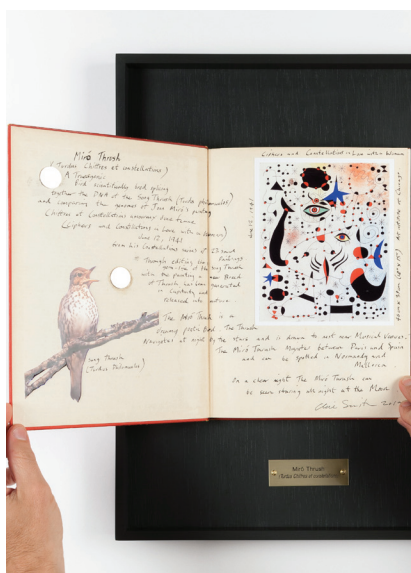 Miró Thrush
(Turdus Chiffres et constellations)
A Transgenic
bird scientifically bred splicing
together the DNA of the Song Thrush (Turdus philomelos)
and the of Joan Miró's painting
Chiffres et Constellations amoureux d'une femme
(Ciphers and Constellations in Love with a Woman)
June 12, 1941
from his Constellations series of 23 works
Through editing
of the Song Thrush
with the painting a new Breed
of Thrush has been
in captivity and
released into nature.
The Miró Thrush is a
bird. The Thrush
Navigates at night by the stars and is drawn to
The Miró Thrush Migrates between Paris and Spain
and can be spotted in Normandy and
Mallorca.
On a clear night The Miró Thrush can
be seen staring all night at the Moon
2017
Song Thrush
(Turdus Philomelos)
Ciphers and Constellations in Love with a Woman
June 12, 1941
Art Institute of Chicago
Miró Thrush
(Turdus Chiffres et constellations)